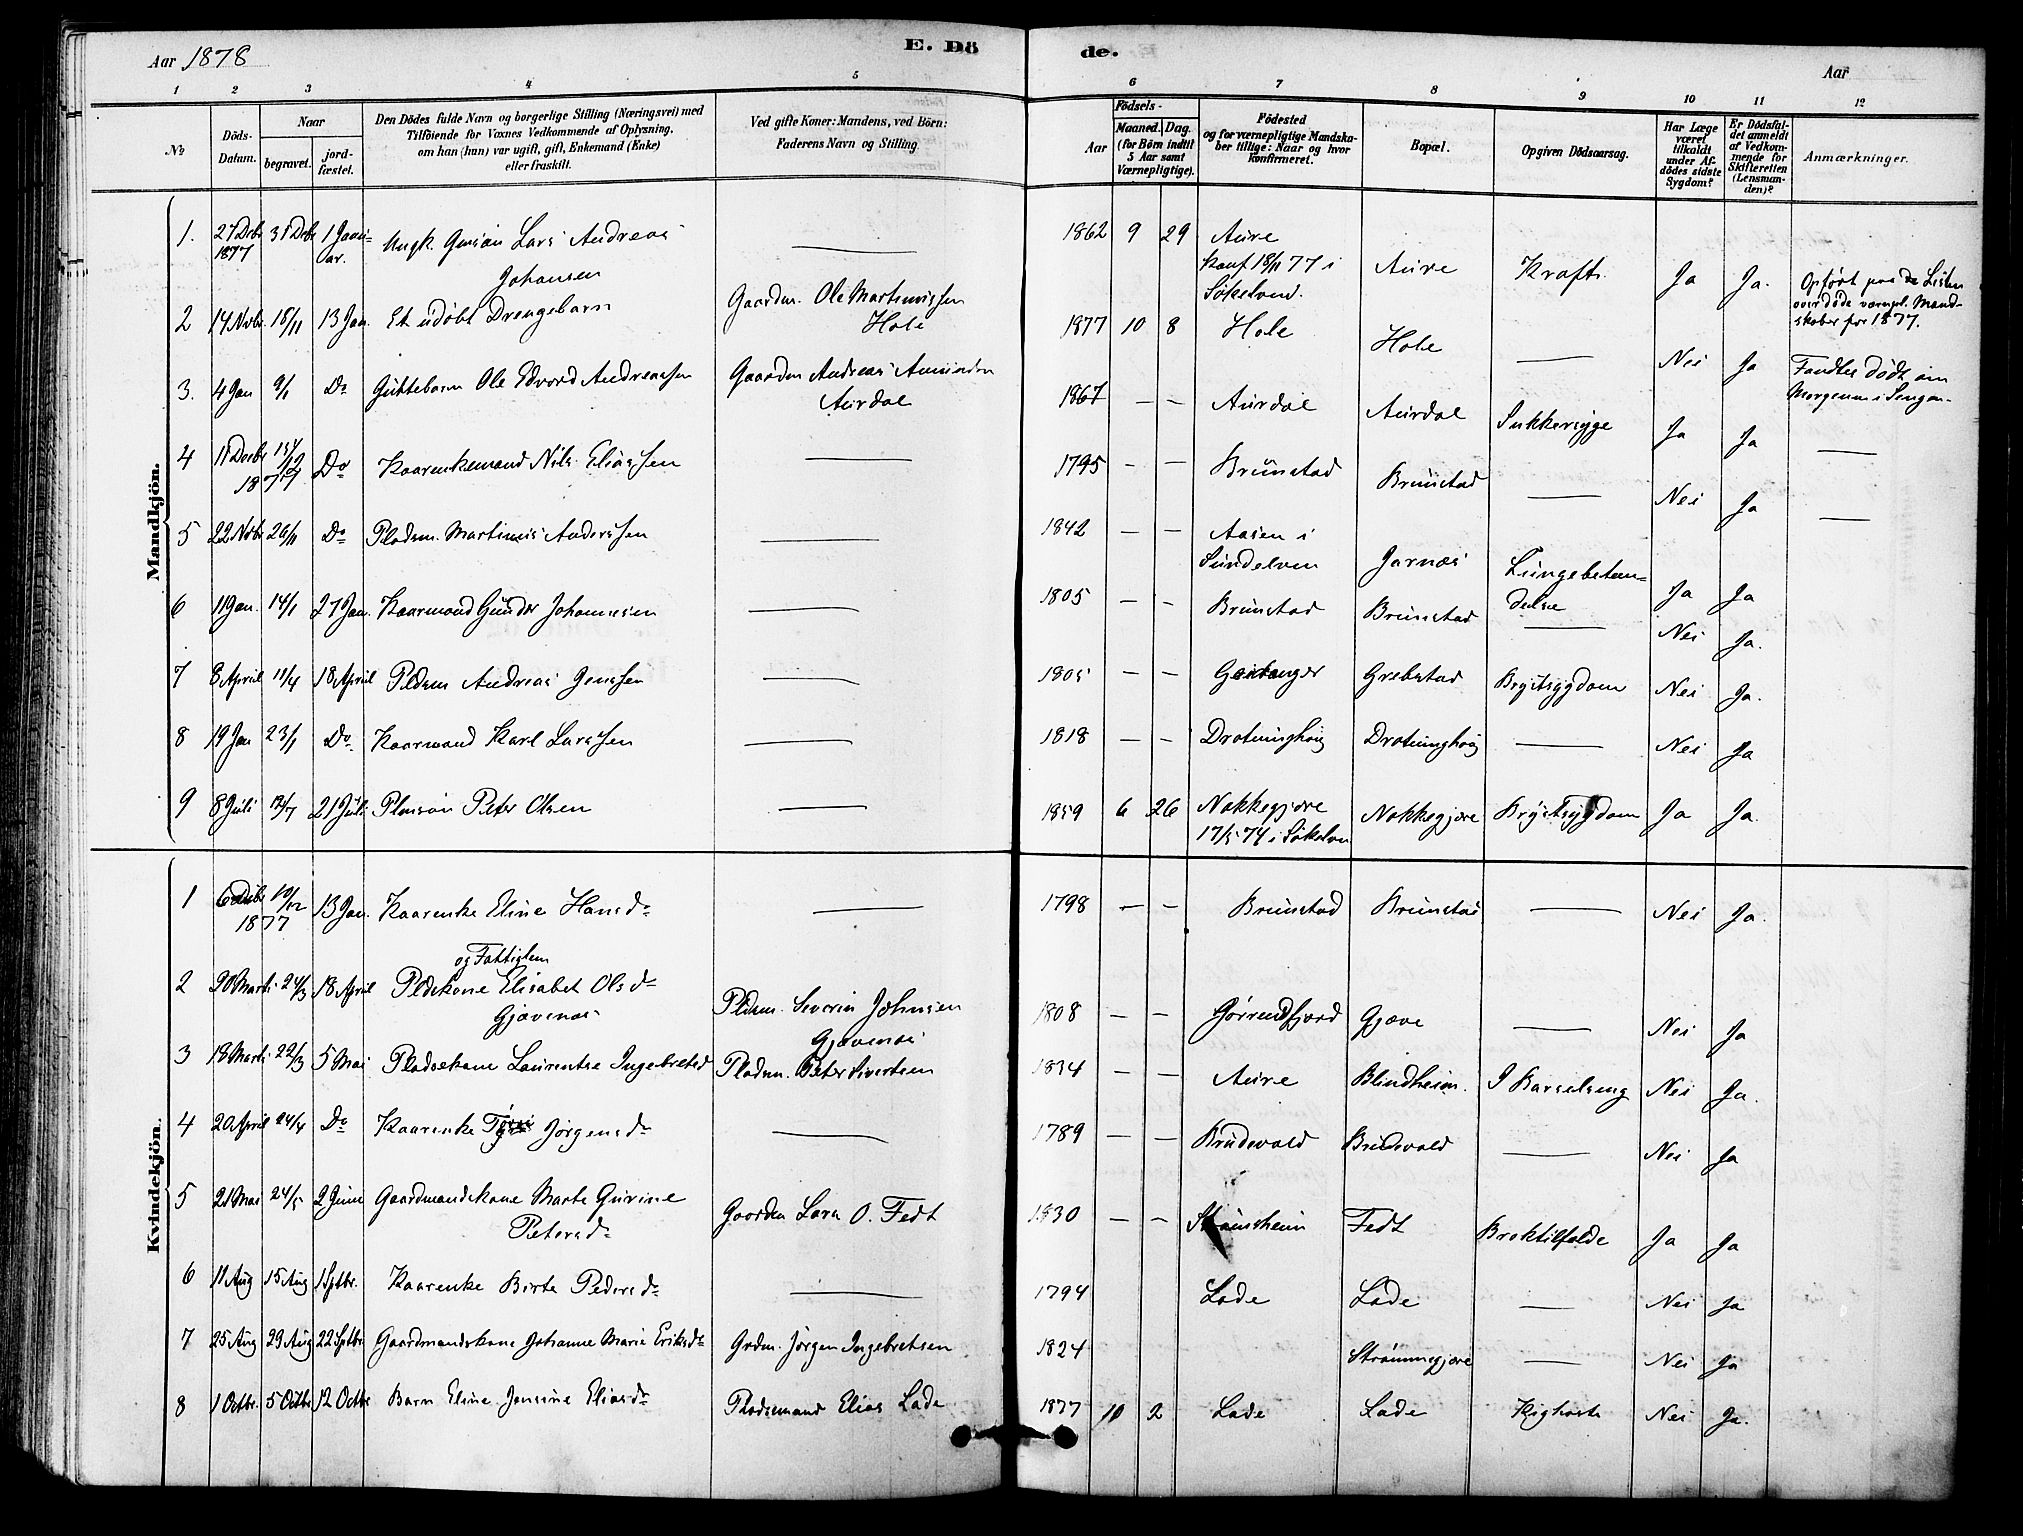 Aar 1878
E. Dö
de.
Aar
1 2 3 4 5 6 7 8 9 10 11 12
No
Döds-Datum.
Naar
begravet.
jord-fæstet.
Den Dödes fulde Navn og borgerlige Stilling (Næringsvei) med
Tilföiende for Voxnes Vedkommende af Oplysning.
om han (hun) var ugift, gift, Enkemand (Enke)
eller fraskilt.
Ved gifte Koner: Mandens, ved Börn:
Faderens Navn og Stilling
Födsels-
Aar
Maaned. Dag.
(for Börn indtil
5 Aar samt
Værnepligtige).
Födested
og for værnepligtige Mandska-
ber tillige: Naar og hvor
konfirmeret.
Bopæl.
Opgiven Dödsaarsag.
Har Læge
været
tilkaldt
under Af-
dödes sidste
Sygdom?
Er Dödsfal-
det anmeldt
af Vedkom-
mende for
Skifteretten
(Lensman-
den)?
Anmærkninger.
Mandkjön.
1. 27 Decbr 1877 31 Decbr 1 Janu-ar. Ungk. Lars Andreas Johansen — 1862 9 29 Aure Konf 18/11 77 i Søkelven. Aure Kræft. Ja Ja. Opført paa de Listen over døde værnepl. Mand-skaber for 1877.
2 14 Novbr. 18/11 13 Jan. Et udøbt Drengebarn Gaardm. Ole Martinussen Hole 1877 10 8 Hole Hole — Nei Ja Fandtes dødt om Morgenen i Sengen.
3. 4 Jan 9/1 Do Guttebarn Ole Edvard Andreassen Gaardm Andreas Aurdal 1867 — — Aurdal Aurdal Sukkersyge Ja Ja —
4 11 Decbr 15/12 1877 Do Kaarenkemand Nils Eliassen — 1795 — — Brunstad Brunstad — Nei Ja —
5 22 Novbr 26/11 Do Pladsm. Martinus Anderssen — 1842 — — Aasen i Sundelven Jarnæs Lungebetæn-delse Ja Ja
6 11 Jan. 14/1 27 Jan. Kaarmand Gunder Johannesen — 1805 — — Brunstad Brunstad — Nei Ja.
7 8 April 11/4 18 April Pldsm Andreas Jenssen — 1805 — — Geiranger Grebstad Brystsygdom Nei Ja.
8 19 Jan 23/1 Do. Kaarmand Karl Larssen — 1818 — — Drotninghaug Drotninghaug — Nei Ja
9 8 Juli 12/7 21 Juli Peter Olsen — 1859 6 26 Nakkegjøre 17/5 74 i Søkelven Nakkegjøre Brystsygdom Ja Ja.
Kvindekjön.
1 6 Decbr 1877 10/12 13 Jan. Kaarenke Eline Hansdr — 1798 — — Brunstad Brunstad — Nei Ja.
2 20 Marts 24/3 18 April Pldskone og Fattiglem Elisabet Olsdr Gjævenæs Pldsm. Severin Johnsen Gjævenæs 1808 — — Jørrendfjord Gjæve — Nei Ja
3 18 Marts 22/3 5 Mai Pladsekone Laurentse Ingebretsd Pladsm. Peter Sivertsen 1834 — — Aure Blindheim. I Barselseng Nei Ja.
4 20 April 24/4 Do Kaarenke Jørgensdr — 1789 — — Brudevold Brudevold — Nei Ja
5 21 Mai 24/5 2 Juni Gaardmandskone Marte Gurine Petersdr Gaardm Lars O. Fedt 1830 — — Strømsheim Fedt Broktilfælde Ja Ja
6 11 Aug 15 Aug 1 Sptbr. Kaarenke Birte Pedersdr — 1794 Lade Lade — Nei Ja
7 25 Aug 29 Aug 22 Sptbr Gaardmandskone Johanne Marie Eriksdr Grdm. Jørgen Ingebretsen 1824 Strømmegjære — Nei Ja
8 1 Octbr. 5 Octbr 12 Octbr Barn Eline Jensine Eliasdr Pladsemand Elias Lade 1877 10 2 Lade Lade Kighoste Nei Ja.